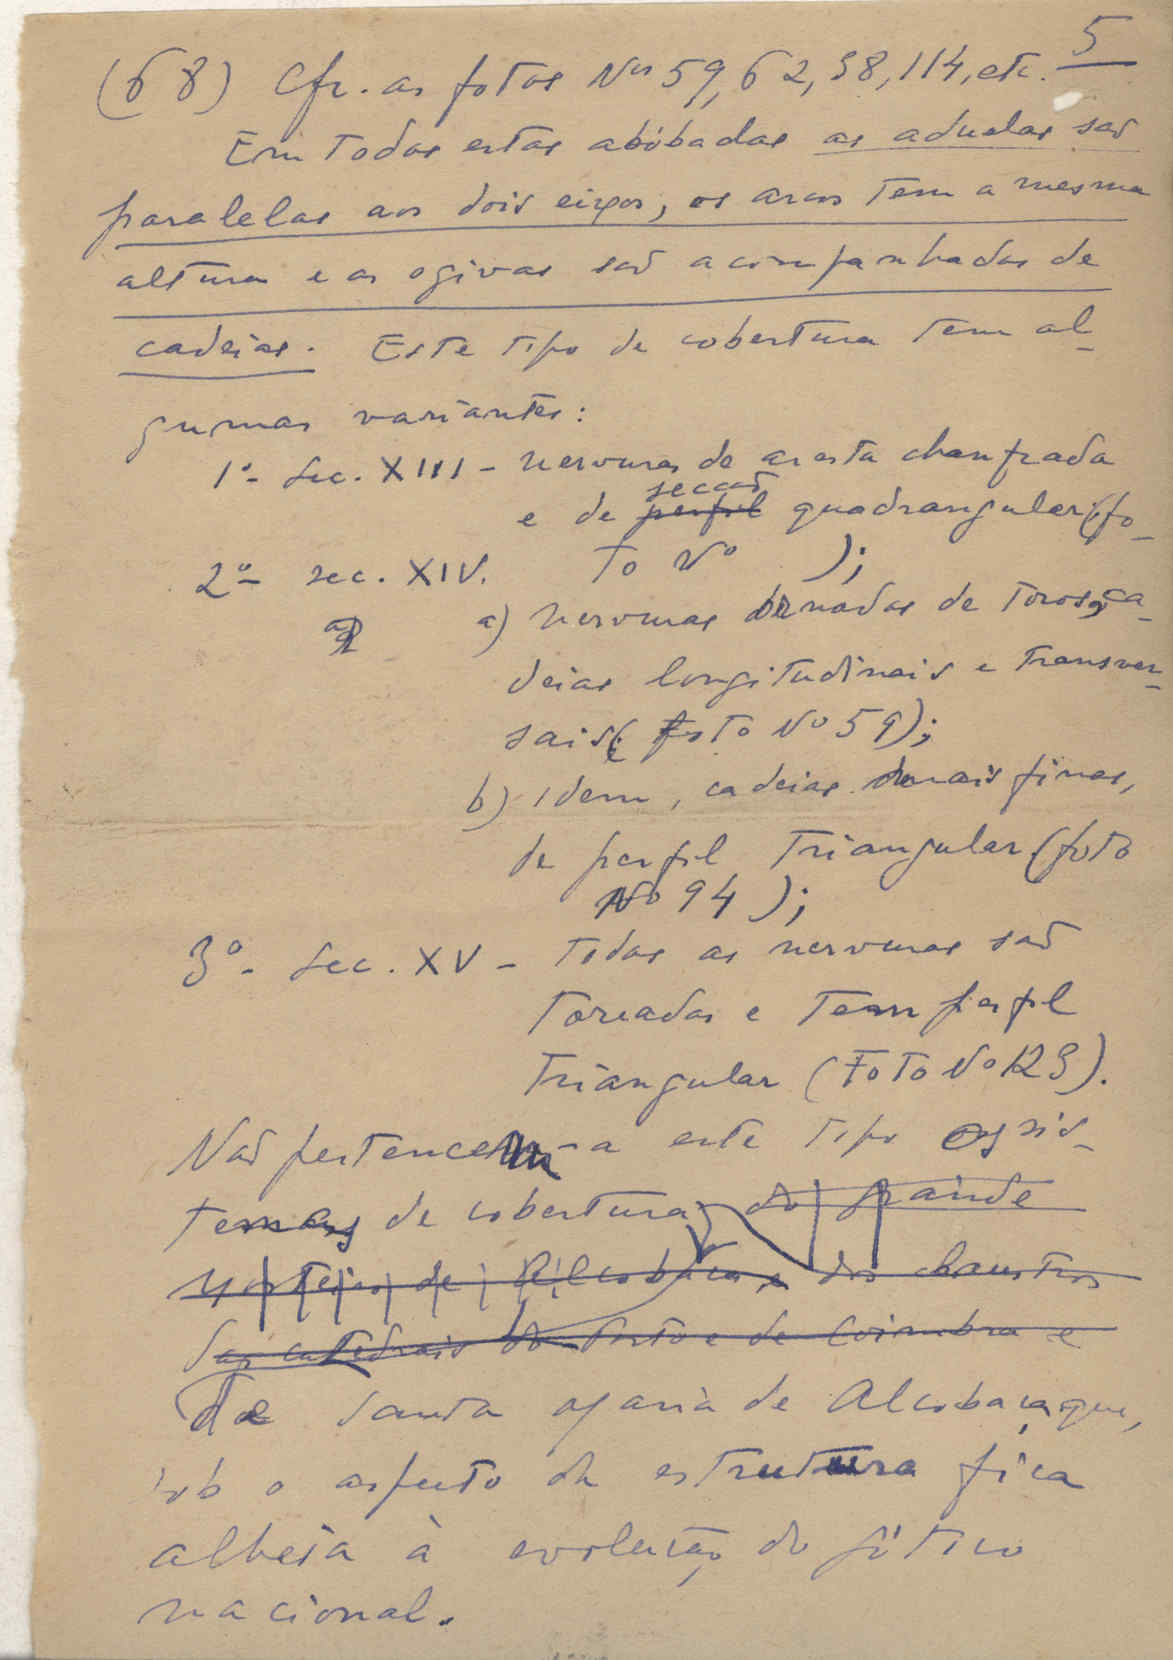 5
(68) Cfr. as fotos Nos 59, 62, 98, 114, etc.
Em todas estas abóbadas as aduelas são
paralelas aos dois eixos, os arcos tem a mesma
altura e as ogivas são acompanhadas de
cadeias. Este tipo de cobertura tem al-
gumas variantes:
1º - Sec. XIII - nervuras de aresta chanfrada
secção
e de perfil quadrangular (fo-
to Nº );
2º - sec. XIV.
a) nervuras ornadas de toros, ca-
deias longitudinais e transver-
sais (foto Nº 59);
b) Idem, cadeias mais finas,
de perfil triangular (foto
Nº 94);
3º - Sec. XV - todas as nervuras são
toreadas e tem perfil
triangular (foto Nº 123).
Não pertencem a este tipo os sis-
temas de cobertura do grande
mosteiro de Alcobaça, e dos claustros
das catedrais do Porto e de Coimbra e
de Santa Maria de Alcobaça que,
sob o aspecto da estrutura fica
alheia à evolução do gótico
nacional.